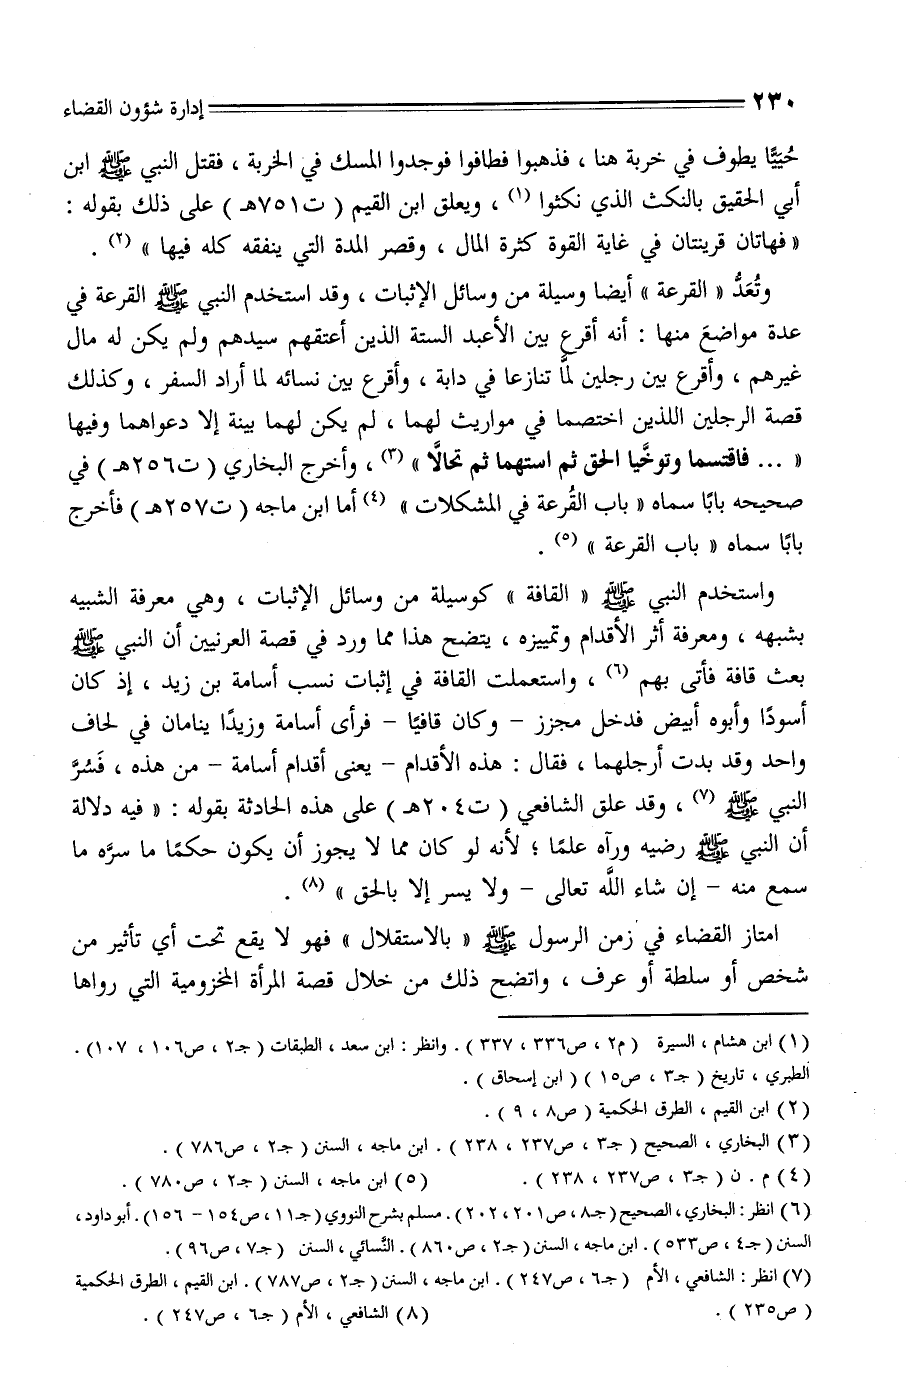 ٢٣٠ إدارة شؤون القضاء
حُيَيًّا يطوف في خربة هنا ، فذهبوا فطافوا فوجدوا المسك في الخربة ، فقتل النبي ﷺ ابن
أبي الحقيق بالنكث الذي نكثوا (١) ، ويعلق ابن القيم ( ت٧٥١هـ ) على ذلك بقوله :
« فهاتان قرينتان في غاية القوة كثرة المال ، وقصر المدة التي ينفقه كله فيها » (٢) .
وتُعَدُّ « القرعة » أيضا وسيلة من وسائل الإثبات ، وقد استخدم النبي ﷺ القرعة في
عدة مواضعَ منها : أنه أقرع بين الأعبد الستة الذين أعتقهم سيدهم ولم يكن له مال
غيرهم ، وأقرع بين رجلين لمَّا تنازعا في دابة ، وأقرع بين نسائه لما أراد السفر ، وكذلك
قصة الرجلين اللذين اختصما في مواريث لهما ، لم يكن لهما بينة إلا دعواهما وفيها
« ... فاقتسما وتوخَّيا الحق ثم استهما ثم تحالَّا » (٣) ، وأخرج البخاري ( ت٢٥٦هـ ) في
صحيحه بابًا سماه « باب القُرعة في المشكلات » (٤) أما ابن ماجه ( ت٢٥٧هـ ) فأخرج
بابًا سماه « باب القرعة » (٥) .
واستخدم النبي ﷺ « القافة » كوسيلة من وسائل الإثبات ، وهي معرفة الشبيه
بشبهه ، ومعرفة أثر الأقدام وتمييزه ، يتضح هذا مما ورد في قصة العرنيين أن النبي ﷺ
بعث قافة فأتى بهم (٦) ، واستعملت القافة في إثبات نسب أسامة بن زيد ، إذ كان
أسودًا وأبوه أبيض فدخل مجزز – وكان قافيًا – فرأى أسامة وزيدًا ينامان في لحاف
واحد وقد بدت أرجلهما ، فقال : هذه الأقدام – يعنى أقدام أسامة – من هذه ، فَسُرَّ
النبي ﷺ (٧) ، وقد علق الشافعي ( ت٢٠٤هـ ) على هذه الحادثة بقوله : « فيه دلالة
أن النبي ﷺ رضيه ورآه علمًا ؛ لأنه لو كان مما لا يجوز أن يكون حكمًا ما سرَّه ما
سمع منه – إن شاء اللَّه تعالى – ولا يسر إلا بالحق » (٨) .
امتاز القضاء في زمن الرسول ﷺ « بالاستقلال » فهو لا يقع تحت أي تأثير من
شخص أو سلطة أو عرف ، واتضح ذلك من خلال قصة المرأة المخزومية التي رواها
(١) ابن هشام ، السيرة ( م٢ ، ص٣٣٦ ، ٣٣٧ ) . وانظر : ابن سعد ، الطبقات ( جـ٢ ، ص١٠٦ ، ١٠٧) .
الطبري ، تاريخ ( جـ٣ ، ص١٥ ) ( ابن إسحاق ) .
(٢) ابن القيم ، الطرق الحكمية ( ص٨ ، ٩ ) .
(٣) البخاري ، الصحيح ( جـ٣ ، ص٢٣٧ ، ٢٣٨ ) . ابن ماجه ، السنن ( جـ٢ ، ص٧٨٦ ) .
(٤) م . ن ( جـ٣ ، ص٢٣٧ ، ٢٣٨ ) . (٥) ابن ماجه ، السنن ( جـ٢ ، ص٧٨٠ ) .
(٦) انظر : البخاري ، الصحيح ( جـ٨ ، ص٢٠١ ، ٢٠٢) . مسلم بشرح النووي ( جـ١١ ، ص١٥٤ – ١٥٦) . أبو داود ،
السنن ( جـ٤ ، ص٥٣٣ ) . ابن ماجه ، السنن ( جـ٢ ، ص٨٦٠ ) . النَّسائي ، السنن ( جـ٧ ، ص٩٦ ) .
(٧) انظر : الشافعي ، الأم ( جـ٦ ، ص٢٤٧ ) . ابن ماجه ، السنن ( جـ٢ ، ص٧٨٧ ) . ابن القيم ، الطرق الحكمية
( ص٢٣٥ ) . (٨) الشافعي ، الأم ( جـ٦ ، ص٢٤٧ ) .